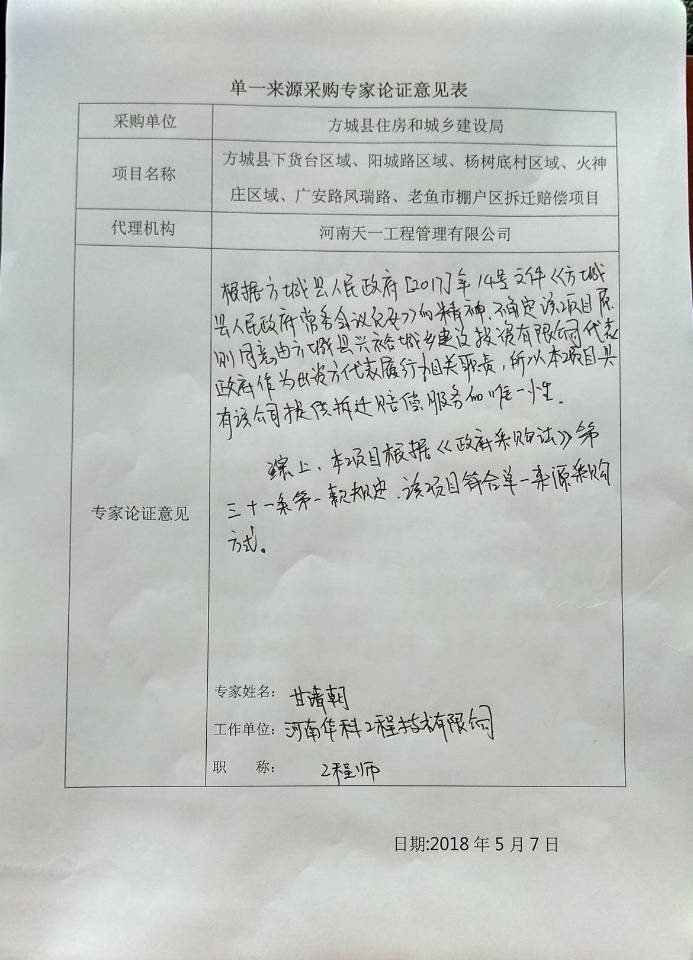 单一来源采购专家论证意见表
采购单位
方城县住房和城乡建设局
项目名称
方城县下货台区域、阳城路区域、杨树底村区域、火神
庄区域、广安路凤瑞路、老鱼市棚户区拆迁赔偿项目
代理机构
河南天一工程管理有限公司
专家论证意见
根据方城县人民政府[2017]年14号文件《方城
县人民政府常务会议纪要》的精神,确定该项目原
则同意由方城县兴裕城乡建设投资有限公司代表
政府作为出资方代表履行相关职责,所以本项目具
有该公司提供拆迁赔偿服务的唯一性。
综上、本项目根据《政府采购法》第
三十一条第一款规定,该项目符合单一来源采购
方式。
专家姓名:甘清朝
工作单位:河南华科工程技术有限公司
职 称:工程师
日期:2018年5月7日